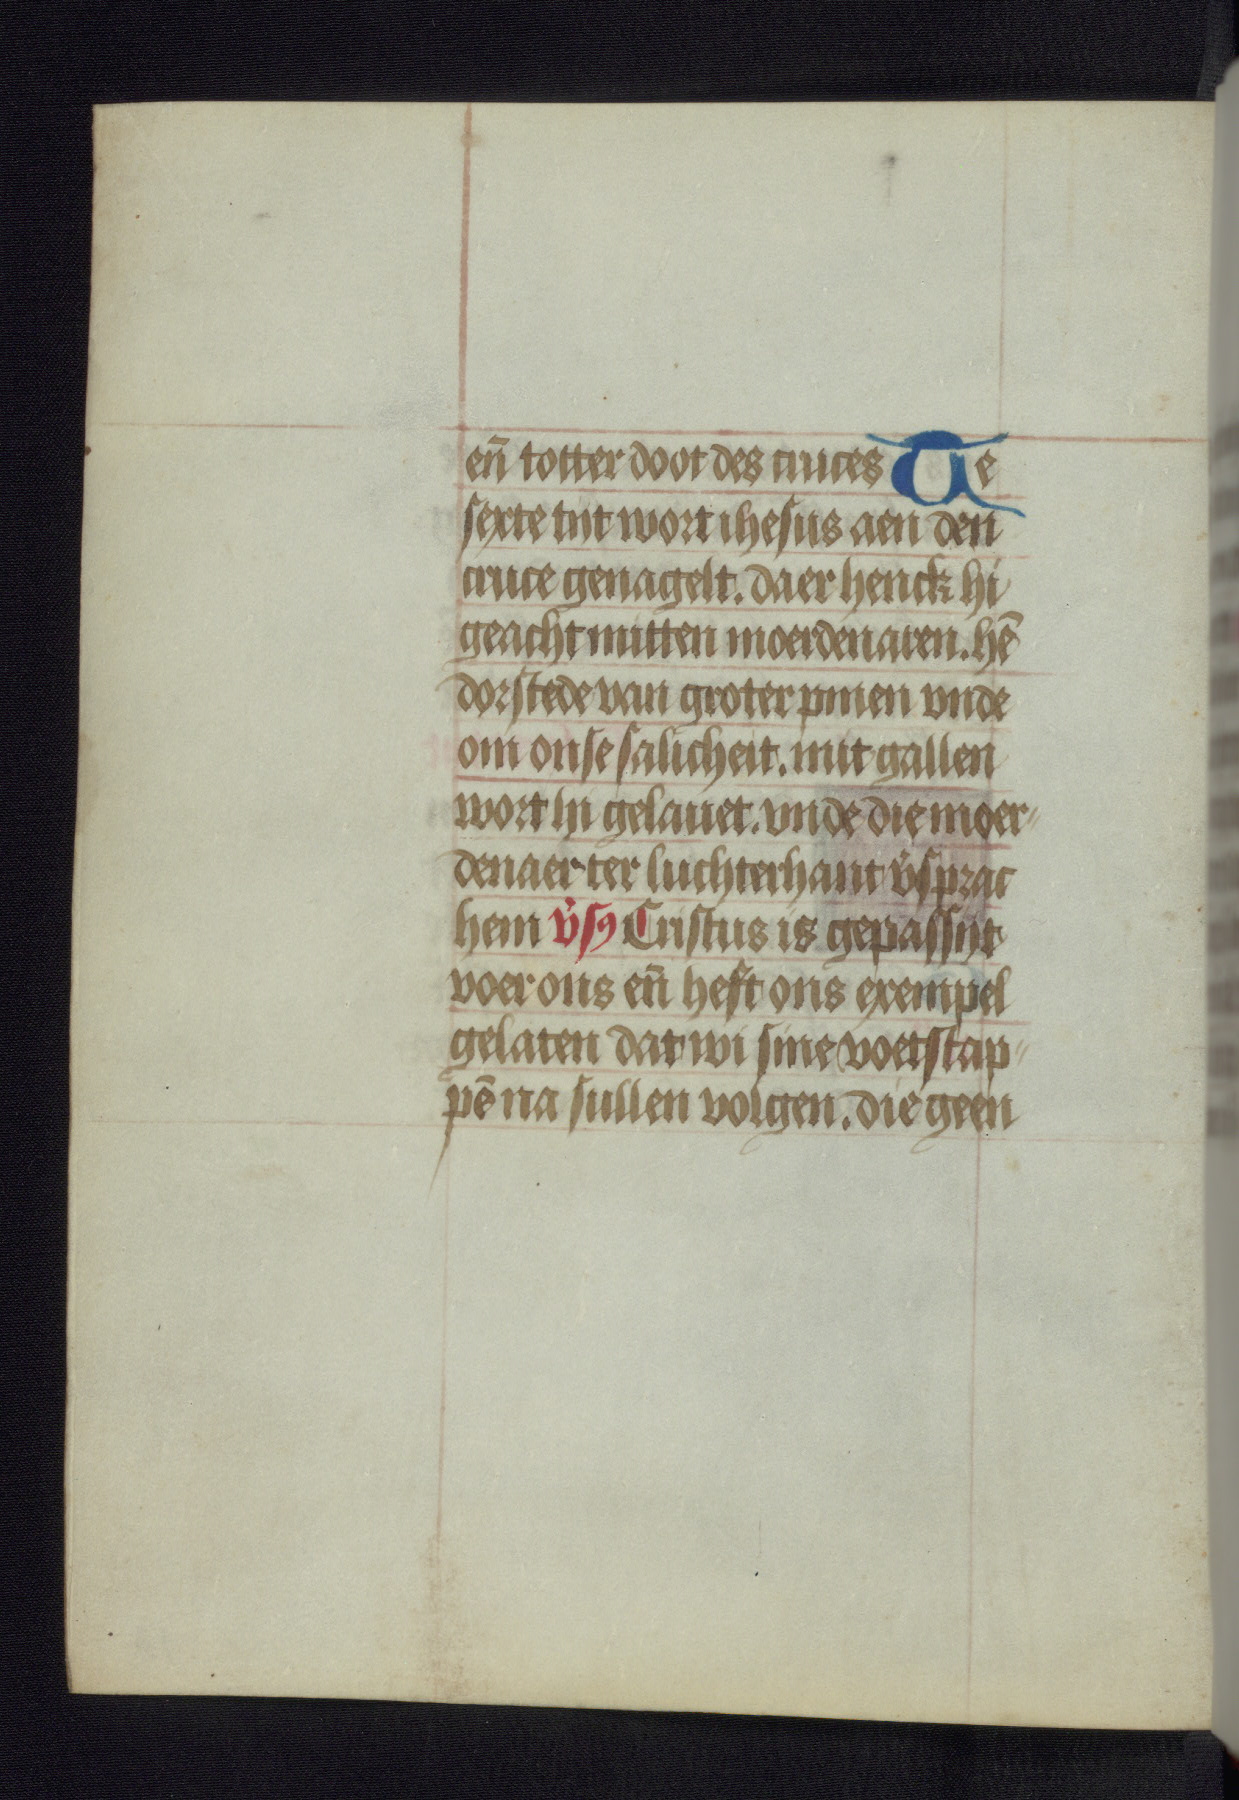 en̄ totter doot des cruces Te
sexte tijt wort ihesus aen den
cruce genagelt. daer henck hi
geacht mitten moerdenaren. hē
dorstede van groter pinen vnde
om onse salicheit. mit gallen
wort hi gelauet. vnde die moer-
denaer ter luchterhant v̄sprac
hem v̄sꝰ Cristus is gepassijt
voer ons en̄ heft ons exempel
gelaten dat wi sine voetstap-
pē na sullen volgen. die geen